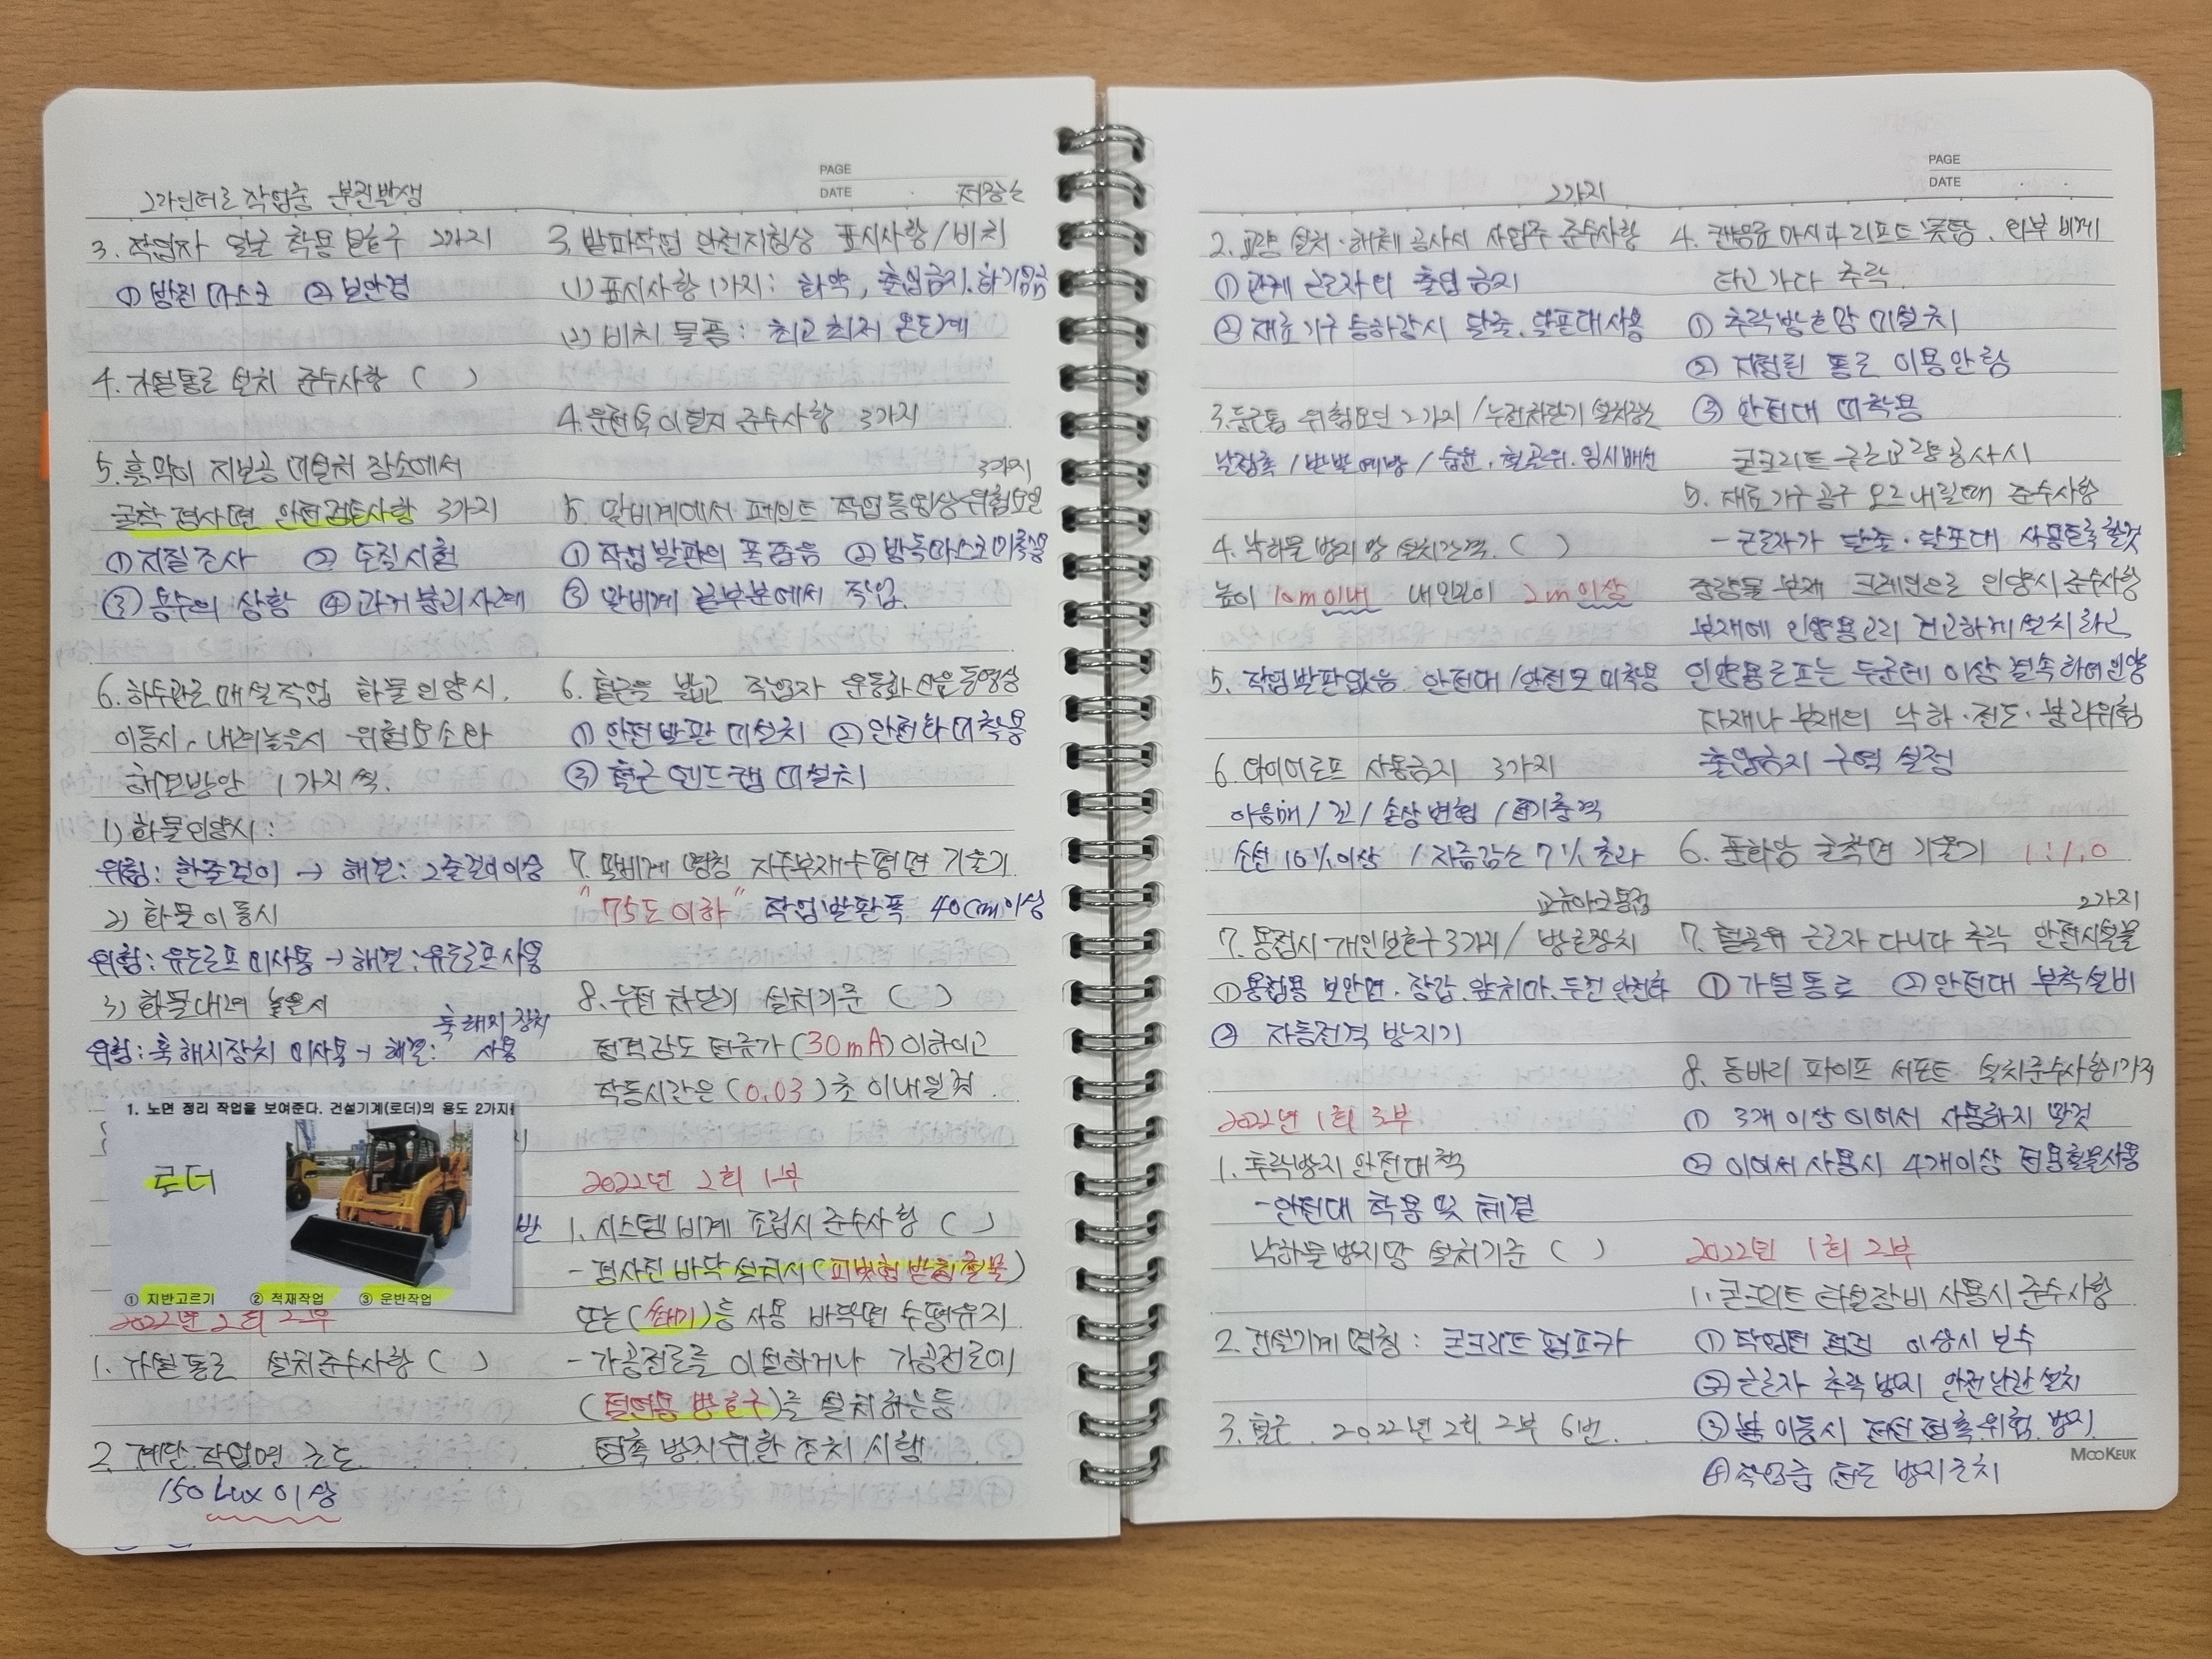 PAGE
DATE
그라인더로 작업중 분진발생
3. 작업자 얼굴 착용 보호구 2가지
① 방진마스크 ② 보안경
4. 가설통로 설치 준수사항 ( )
5. 흙막이 지보공 미설치 장소에서
굴착 경사면 안전검토사항 3가지
① 지질조사 ② 토질시험
③ 용수의 상황 ④ 과거 붕괴사례
6. 하수관로 매설작업 화물 인양시.
이동시, 내려놓을시 위험요소와
해결방안 1가지씩.
1) 화물인양시:
위험: 한줄걸이 → 해결: 2줄걸이이상
2) 화물이동시
위험: 유도로프 미사용 → 해결: 유도로프사용
3) 화물내려 놓을시
훅 해지장치
위험: 훅 해지장치 미사용 → 해결: 사용
1. 노면 정리 작업을 보여준다. 건설기계(로더)의 용도 2가지
로더
① 지반고르기 ② 적재작업 ③ 운반작업
반
2022년 2회 2부
1. 가설통로 설치준수사항 ( )
2. 계단 작업면 조도
150 Lux 이상
저장소
3. 발파작업 안전지침상 표시사항/비치
1) 표시사항 1가지: 화약, 출입금지, 화기엄금
2) 비치 물품: 최고최저 온도계
4. 운전속 이탈지 준수사항 3가지
3가지
5. 말비계에서 페인트 작업 동영상 위험요인
① 작업발판의 폭 좁음 ② 방독마스크 미착용
③ 말비계 끝부분에서 작업.
6. 철근을 밟고 작업자 운동화 신은 동영상
① 안전발판 미설치 ② 안전화 미착용
③ 철근 엔드캡 미설치
7. 말비계 명칭 지주부재 수평면 기울기
"75도 이하" 작업발판폭 40cm이상
8. 누전 차단기 설치기준 ( )
정격감도 전류가 (30mA) 이하이고
작동시간은 (0.03)초 이내일 것
2022년 2회 1부
1. 시스템 비계 조립시 준수사항 ( )
- 경사진 바닥 설치시 (피벗형 받침 철물)
또는 (쐐기)등 사용 바닥면 수평유지
- 가공전로를 이설하거나 가공전로에
(절연용 방호구)를 설치하는등
접촉 방지 위한 조치 시행
PAGE
DATE
2가지
2. 교량 설치·해체 공사시 사업주 준수사항
① 관계 근로자외 출입 금지
② 재료 기구 승하강시 달줄, 달포대사용
3. 둥근톱 위험요인 2가지 / 누전차단기 설치장소
날접촉 / 반발예방 / 습윤, 철골위, 임시배선
4. 낙하물 방지망 설치간격. ( )
높이 10m이내 내민길이 2m 이상
5. 작업발판없음. 안전대/안전모 미착용
6. 와이어로프 사용금지 3가지
이음매 / 꼬 / 손상변형 / 열기충격
소선 10%이상 / 지름감소 7% 초과
교류아크용접
7. 용접시 개인보호구 3가지 / 방호장치
① 용접용 보안면, 장갑, 앞치마, 두건 안전화
② 자동전격 방지기
2022년 1회 3부
1. 추락방지 안전대책
- 안전대 착용 및 체결
낙하물방지망 설치기준 ( )
2. 건설기계 명칭: 콘크리트 펌프카
3. 철근 2022년 2회 2부 6번.
타고 가다 추락.
① 추락방호망 미설치
② 지정된 통로 이용안함
③ 안전대 미착용
콘크리트 구조교량공사시
5. 재료 기구 공구 오르내릴때 준수사항
- 근로자가 달줄·달포대 사용토록 할것
중량물 부재 크레인으로 인양시 준수사항
부재에 인양용고리 견고하게 설치하고
인양용로프는 두군데 이상 결속하여 인양
자재나 부재의 낙하·전도·붕괴위험
출입금지 구역 설정
6. 풍화암 굴착면 기울기 1:1.0
2가지
7. 철골위 근로자 다니다 추락 안전시설물
① 가설통로 ② 안전대 부착설비
8. 동바리 파이프 서포트 설치준수사항 1가지
① 3개 이상 이어서 사용하지 말것
② 이어서 사용시 4개이상 전용철물사용
2022년 1회 2부
1. 콘크리트 타설장비 사용시 준수사항
① 작업전 점검 이상시 보수
② 근로자 추락방지 안전난간 설치
③ 붐 이동시 전선 접촉위험 방지
④ 작업중 전도 방지조치
MOOKEUK